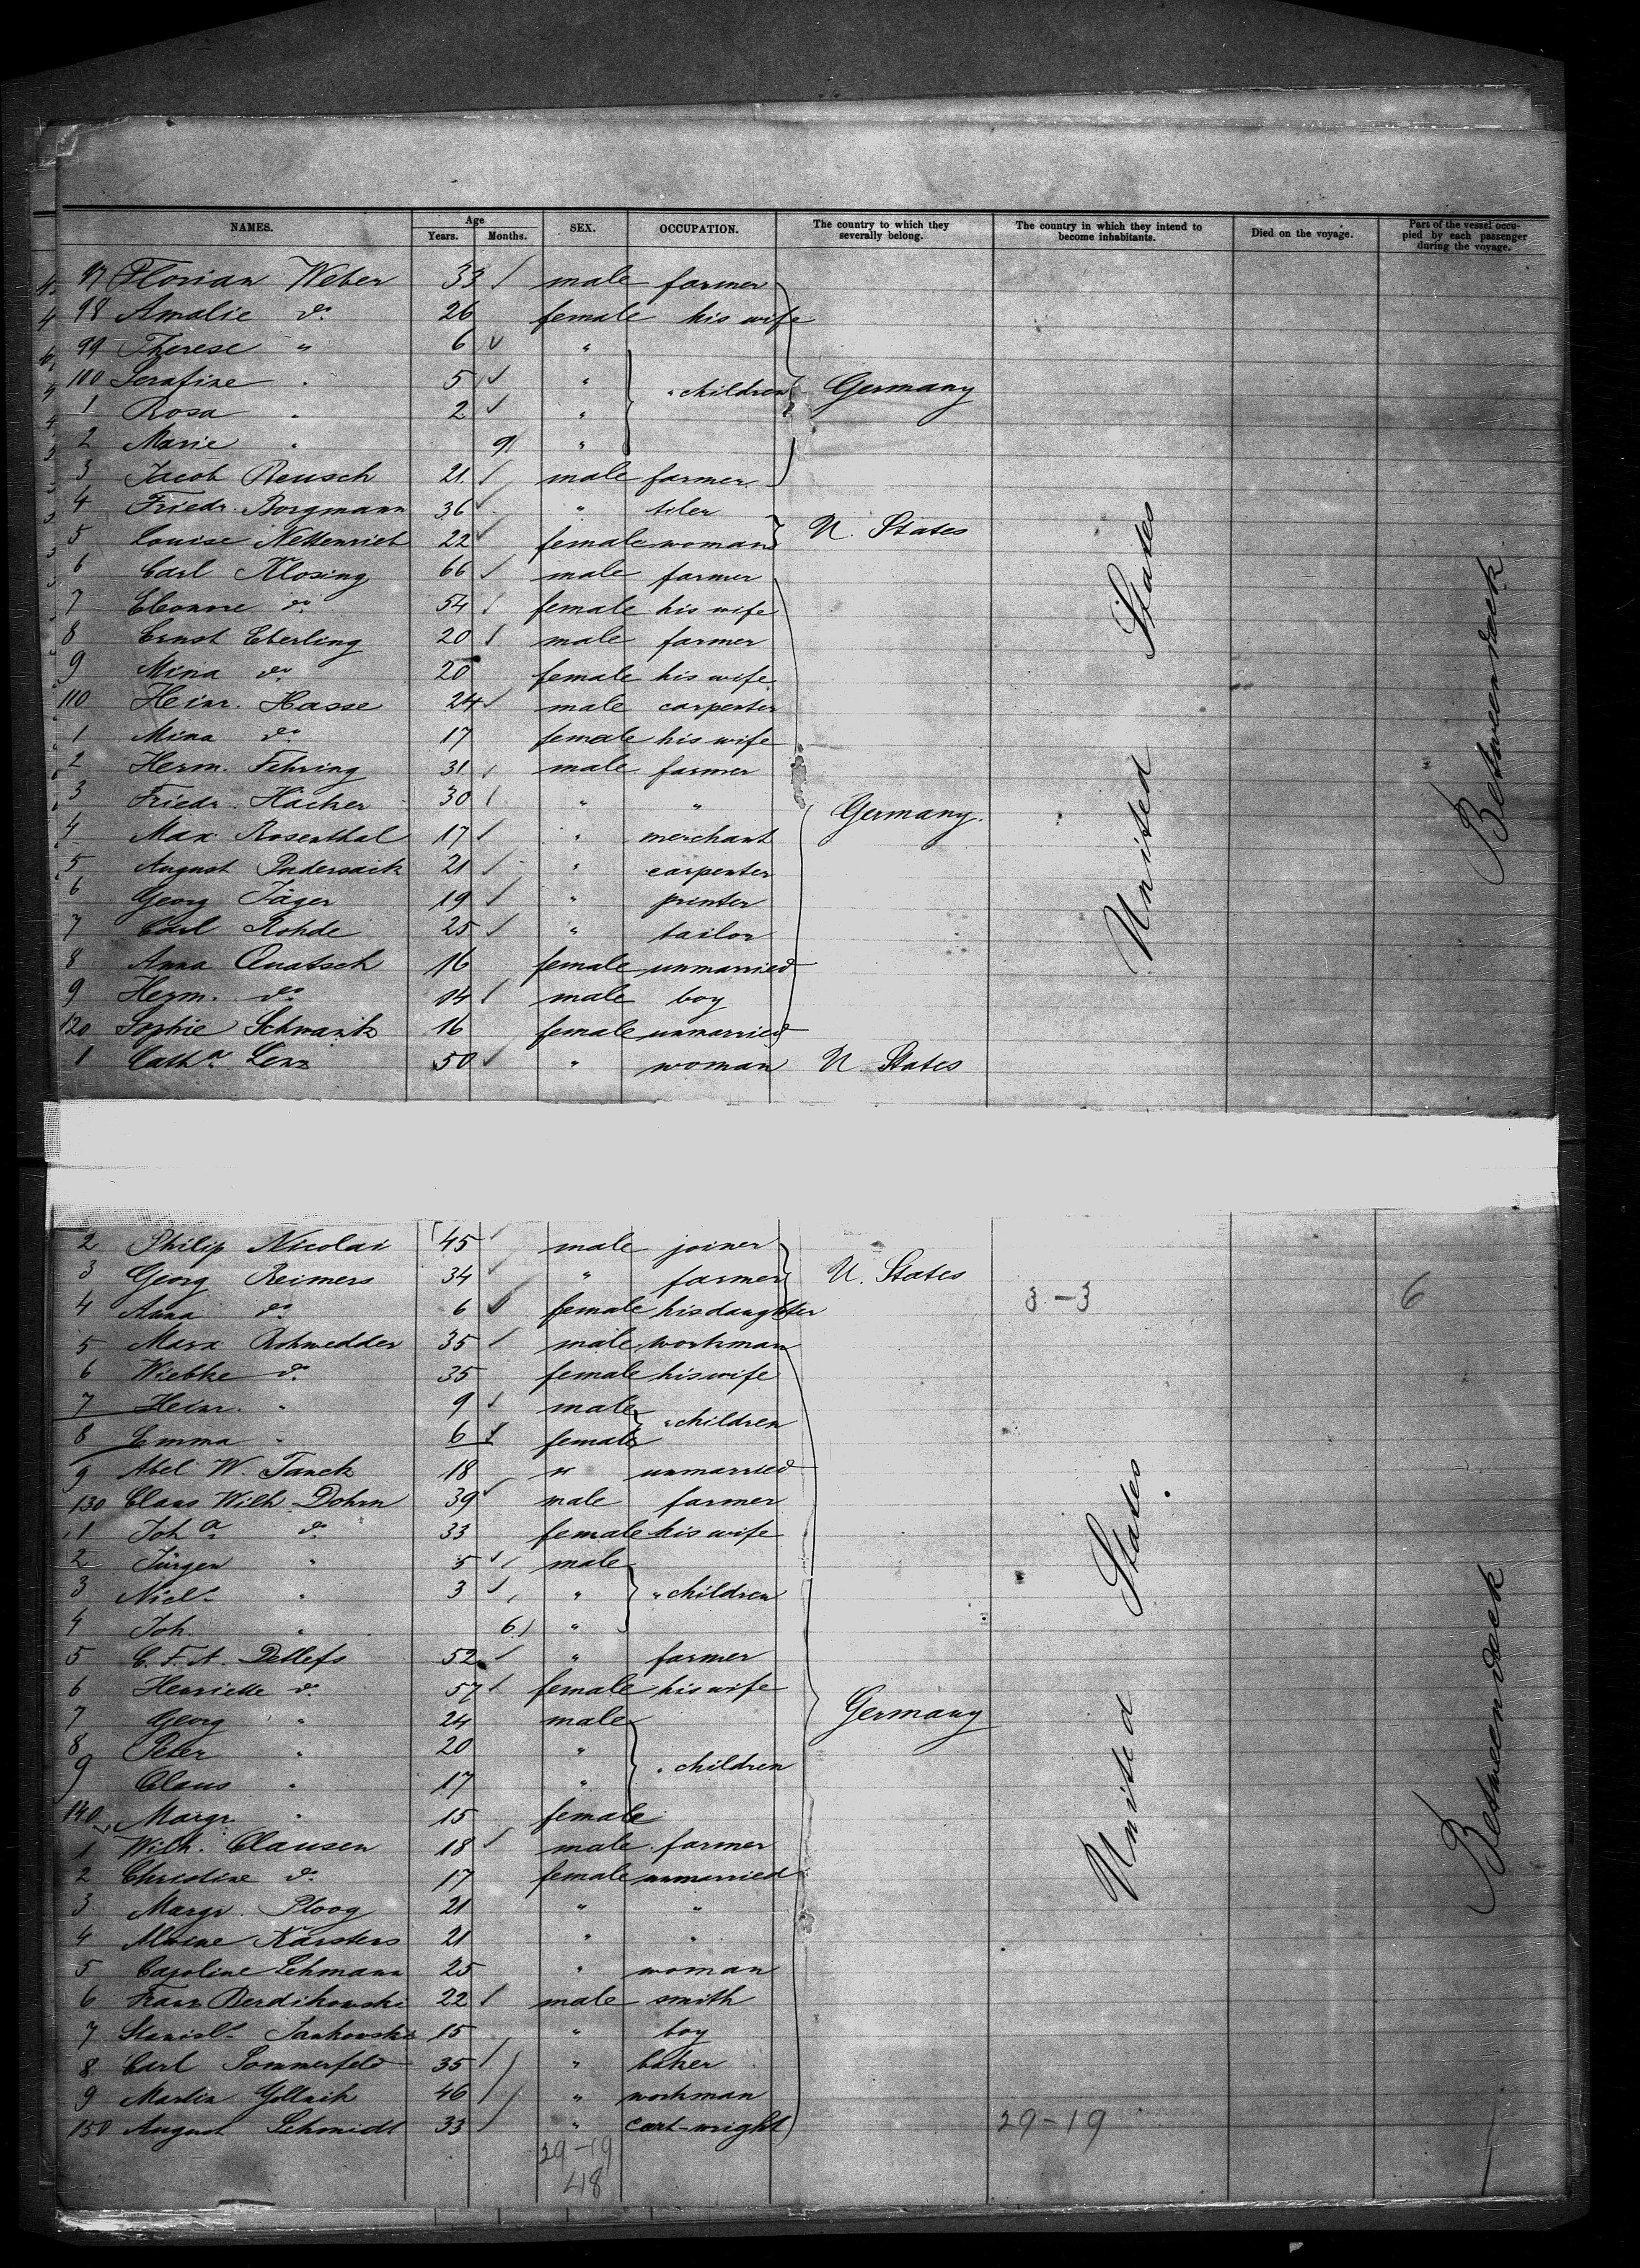 NAMES. Age Years. Months. SEX. OCCUPATION. The country to which they severally belong. The country in which they intend to become inhabitants. Died on the voyage. Part of the vessel occupied by each passenger during the voyage.
97 Florian Weber 33 male farmer
98 Amalie do 26 female his wife
99 Therese " 6 "
100 Serafine " 5 " " children Germany
1 Rosa " 2 "
2 Marie " 9 "
3 Jacob Reusch 21 male farmer
4 Friedr. Borgmann 36 " tiler
5 Louise 22 female woman U. States
6 Carl Klosing 66 male farmer
7 Eleonore do 54 female his wife
8 Ernst Eberling 20 male farmer
9 Mina do 20 female his wife
110 Heinr. Hasse 24 male carpenter
1 Mina do 17 female his wife
2 Herm. Fehring 31 male farmer
3 Friedr. Häcker 30 " "
4 Max Rosenthal 17 " merchant Germany.
5 August 21 " carpenter
6 Georg Jäger 19 " printer
7 Carl Rohde 25 " tailor
8 Anna Quatsch 16 female unmarried
9 Herm. do 14 male boy
120 Sophie Schwank 16 female unmarried
1 Catha Lenz 50 " woman U. States
United States
Betweendeck
2 Philip Nicolai 45 male joiner
3 Georg Reimers 34 " farmer U. States
4 Anna do 6 female his daughter 3-3 6
5 Marx Rohwedder 35 male workman
6 Wiebke do 35 female his wife
7 Heinr. " 9 male
8 Emma " 6 female " children
9 Abel W. Tanck 18 " unmarried
130 Claus Wilh. Dohrn 39 male farmer
1 Joha do 33 female his wife
2 Jürgen " 5 male
3 Nicls " 3 " " children
4 Joh. " 6 "
5 C. F. A. Detlefs 52 " farmer
6 Henriette do 57 female his wife
7 Georg " 24 male Germany
8 Peter " 20 "
9 Claus " 17 " " children
140 Margr. " 15 female
1 Wilh. Clausen 18 male farmer
2 Christine do 17 female unmarried
3 Margr. Ploog 21 " "
4 Alwine Karstens 21 " "
5 Caroline Lehmann 25 " woman
6 Franz Berdikowski 22 male smith
7 Stanisls Jankowski 15 " boy
8 Carl Sommerfeld 35 " baker
9 Martin Gollnik 46 " workman
150 August Schmidt 33 " cart-wright 29-19
29-19
48
United States
Betweendeck